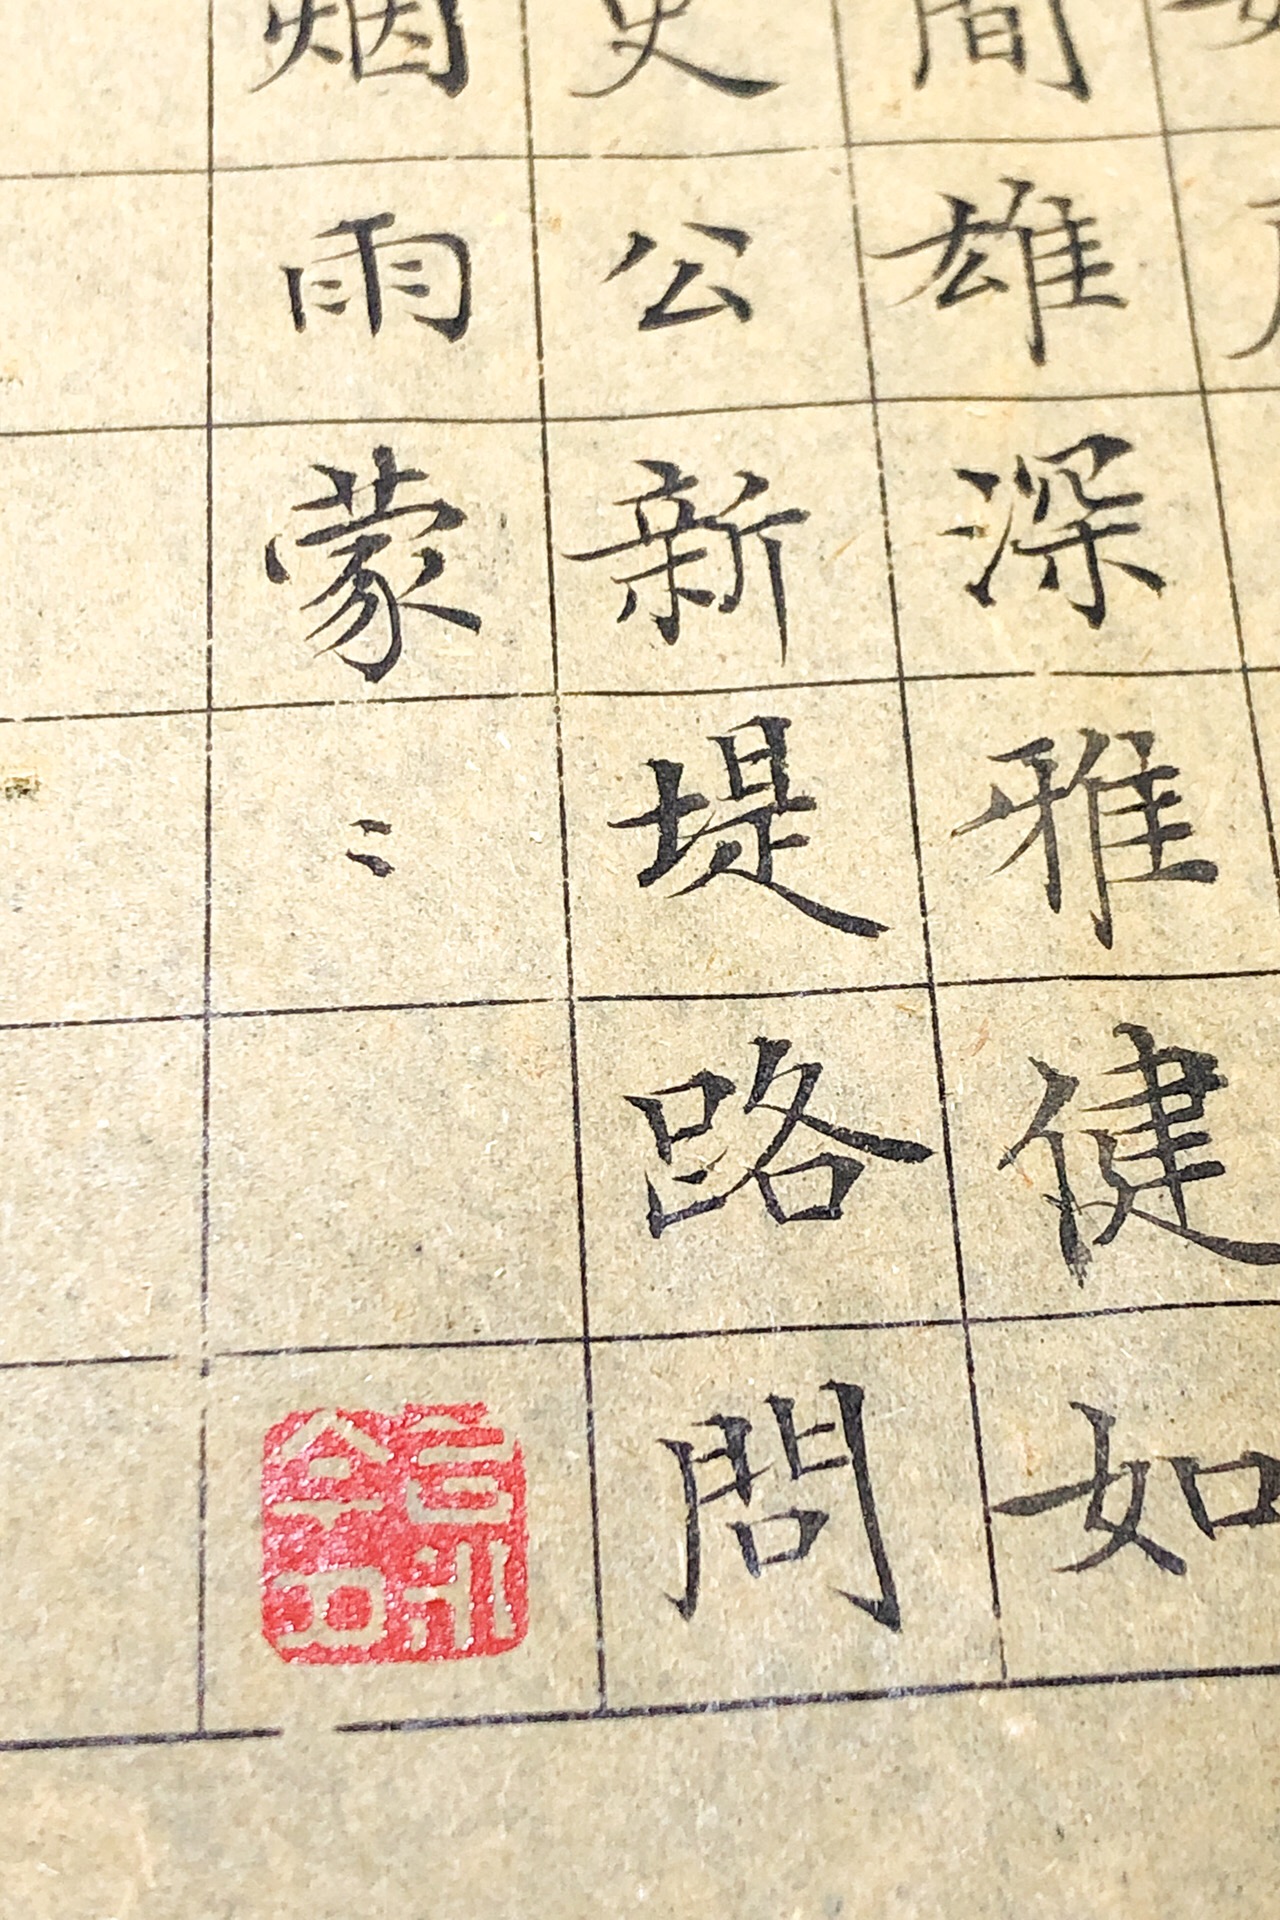 間雄深雅健如
史公新堤路問
烟雨蒙〻